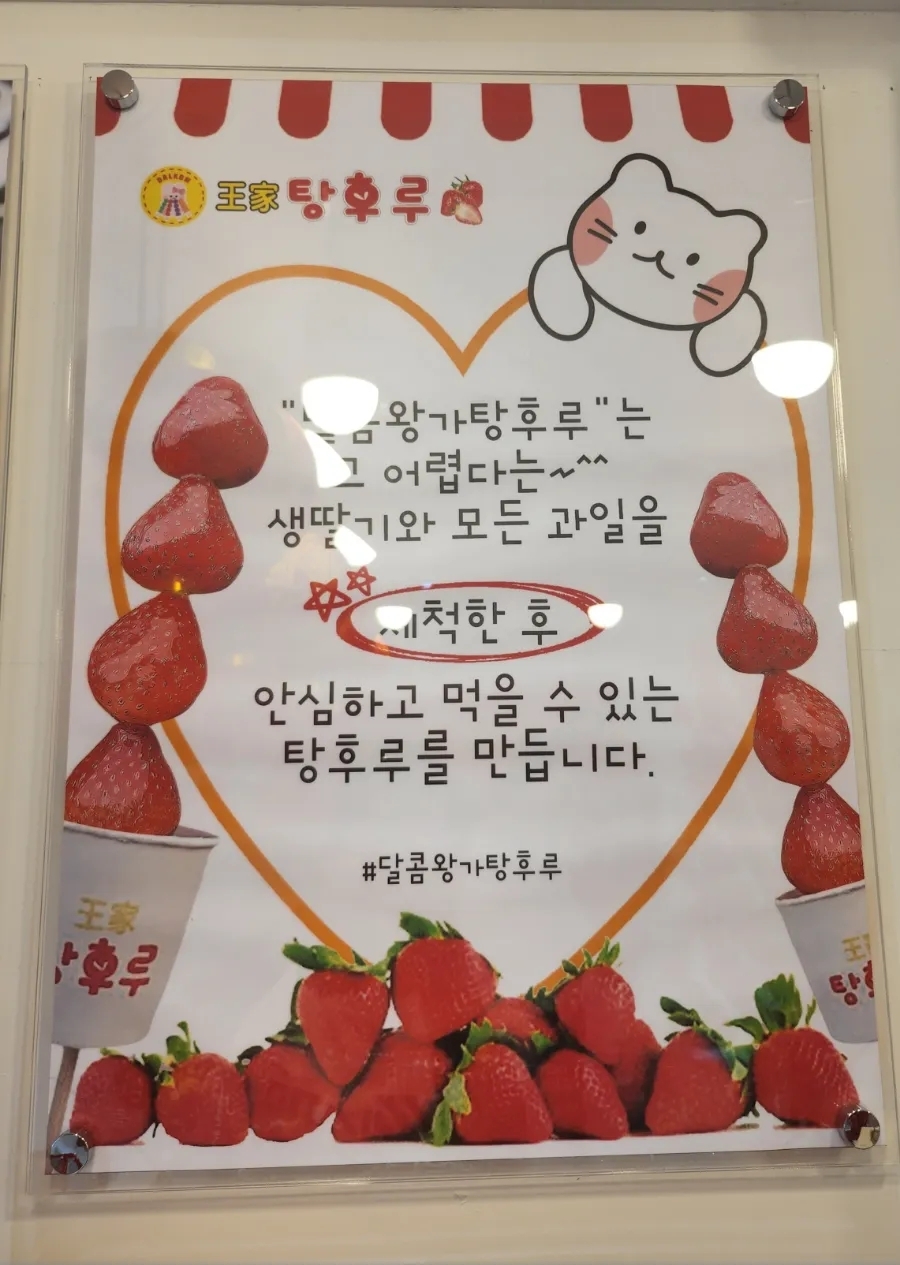 DALKOM
王家 탕후루
"달콤왕가탕후루"는
그 어렵다는~^^
생딸기와 모든 과일을
세척한 후
안심하고 먹을 수 있는
탕후루를 만듭니다.
#달콤왕가탕후루
王家
탕후루
王
탕후